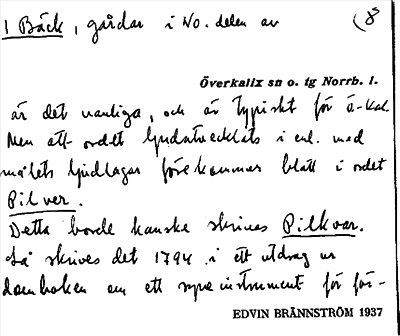 1 Bäck, gårdar i No. delen av
(8
Överkalix sn o. tg Norrb. l.
är det vanliga, och är typiskt för ö-kal.
Men att ordet ljudutvecklats i enl. med
målets ljudlagar förekommer blott i ordet
Pilver.
Detta borde kanske skrivas Pilkvar.
Så skrives det 1794 i ett utdrag ur
domboken om ett syneinstrument för för-
EDVIN BRÄNNSTRÖM 1937